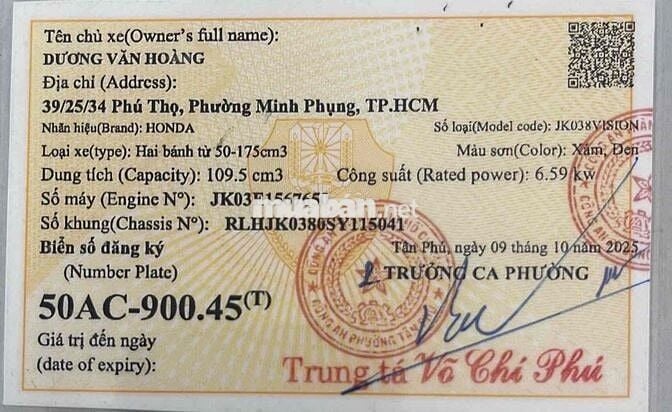 Tên chủ xe(Owner's full name):
DƯƠNG VĂN HOÀNG
Địa chỉ (Address):
39/25/34 Phú Thọ, Phường Minh Phụng, TP.HCM
Nhãn hiệu(Brand): HONDA Số loại(Model code): JK038VISION
Loại xe(type): Hai bánh từ 50-175cm3 Màu sơn(Color): Xám, Đen
Dung tích (Capacity): 109.5 cm3 Công suất (Rated power): 6.59 kw
Số máy (Engine N°): JK03E156765
Số khung(Chassis N°): RLHJK0380SY115041
muaban.net
Biển số đăng ký Tân Phú, ngày 09 tháng 10 năm 2025
(Number Plate) TRƯỞNG CA PHƯỜNG
50AC-900.45(T)
Giá trị đến ngày
(date of expiry): Trung tá Võ Chí Phú